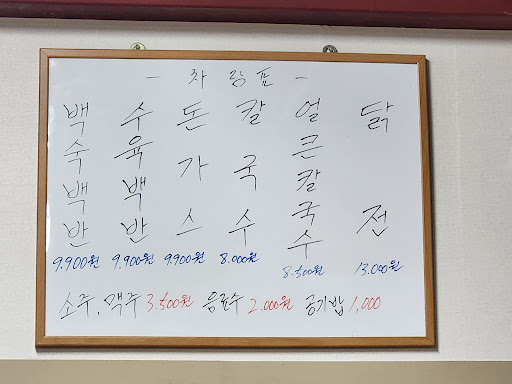 - 차림표 -
백숙백반 9.900원
수육백반 9.900원
돈가스 9.900원
칼국수 8.000원
얼큰칼국수 8.500원
닭전 13.000원
소주, 맥주 3.500원 음료수 2.000원 공기밥 1,000